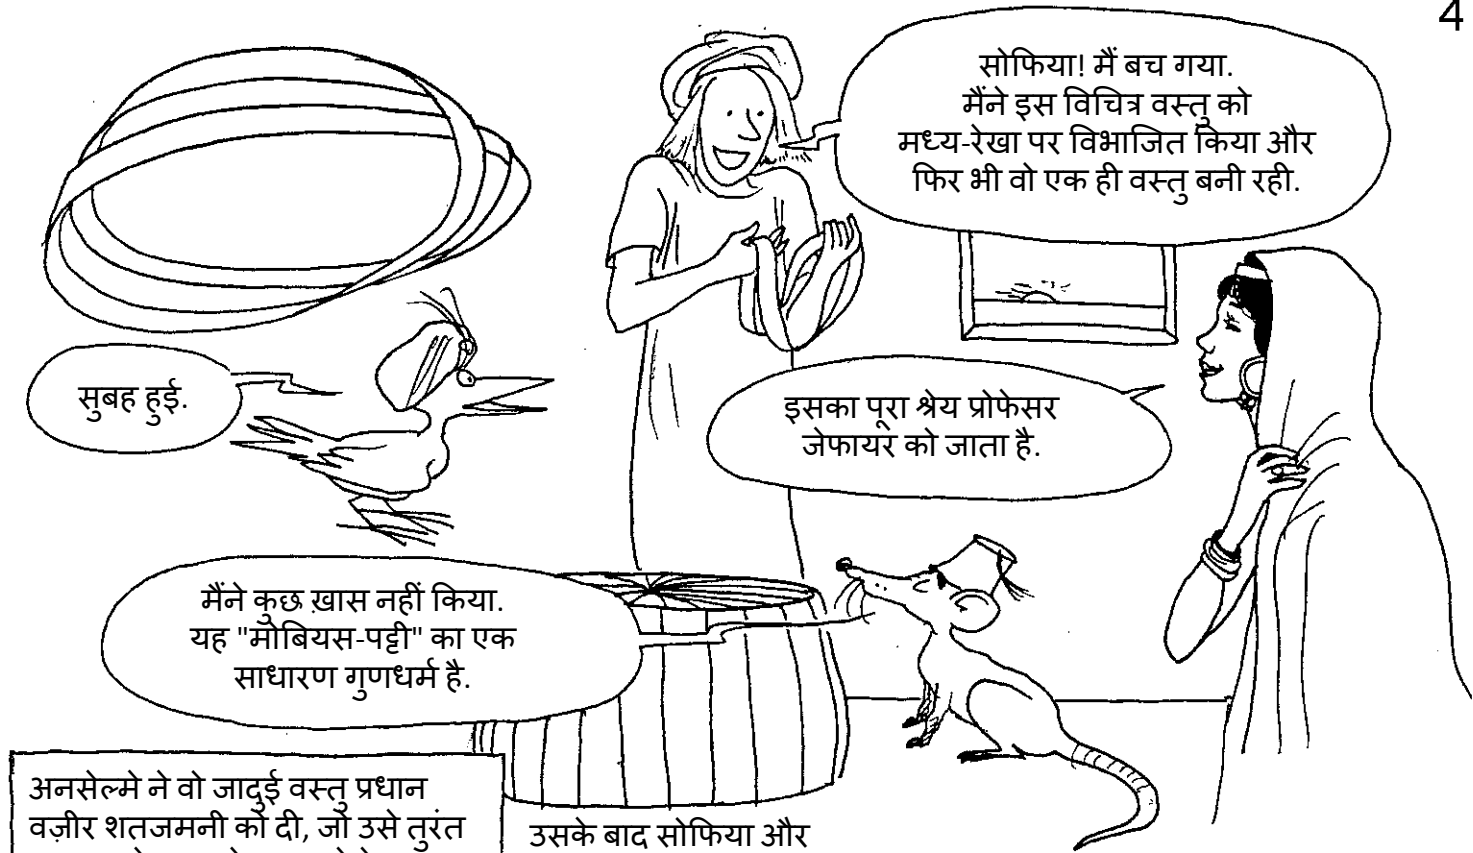 4
सोफिया! मैं बच गया.
मैंने इस विचित्र वस्तु को
मध्य-रेखा पर विभाजित किया और
फिर भी वो एक ही वस्तु बनी रही.
सुबह हुई.
इसका पूरा श्रेय प्रोफेसर
जेफायर को जाता है.
मैंने कुछ ख़ास नहीं किया.
यह "मोबियस-पट्टी" का एक
साधारण गुणधर्म है.
अनसेल्मे ने वो जादुई वस्तु प्रधान
वज़ीर शतजमनी को दी, जो उसे तुरंत
उसके बाद सोफिया और